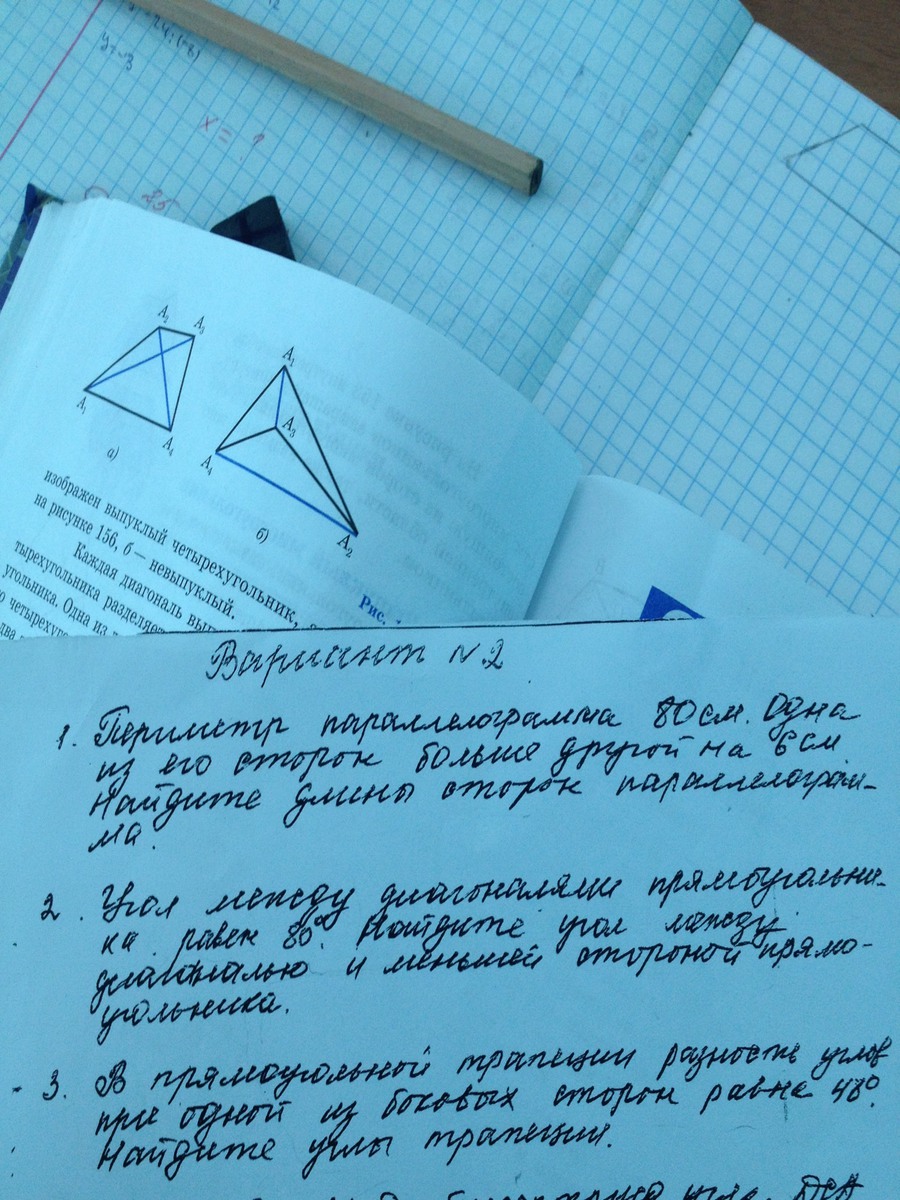 y=-3
x = ?
25
A₂ A₃
A₁
A₄
а)
A₁
A₃
A₄
A₂
б)
изображен выпуклый четырехугольник,
на рисунке 156, б — невыпуклый.
Каждая диагональ вып
тырехугольника разделяет
угольника. Одна из
четырехуго
Рис.
Вариант №2
1. Периметр параллелограмма 80 см. Одна
из его сторон больше другой на 6 см
Найдите длины сторон параллелограм-
ма.
2. Угол между диагоналями прямоугольни-
ка равен 80°. Найдите угол между
диагональю и меньшей стороной прямо-
угольника.
3. В прямоугольной трапеции разность углов
при одной из боковых сторон равна 48°.
Найдите углы трапеции.